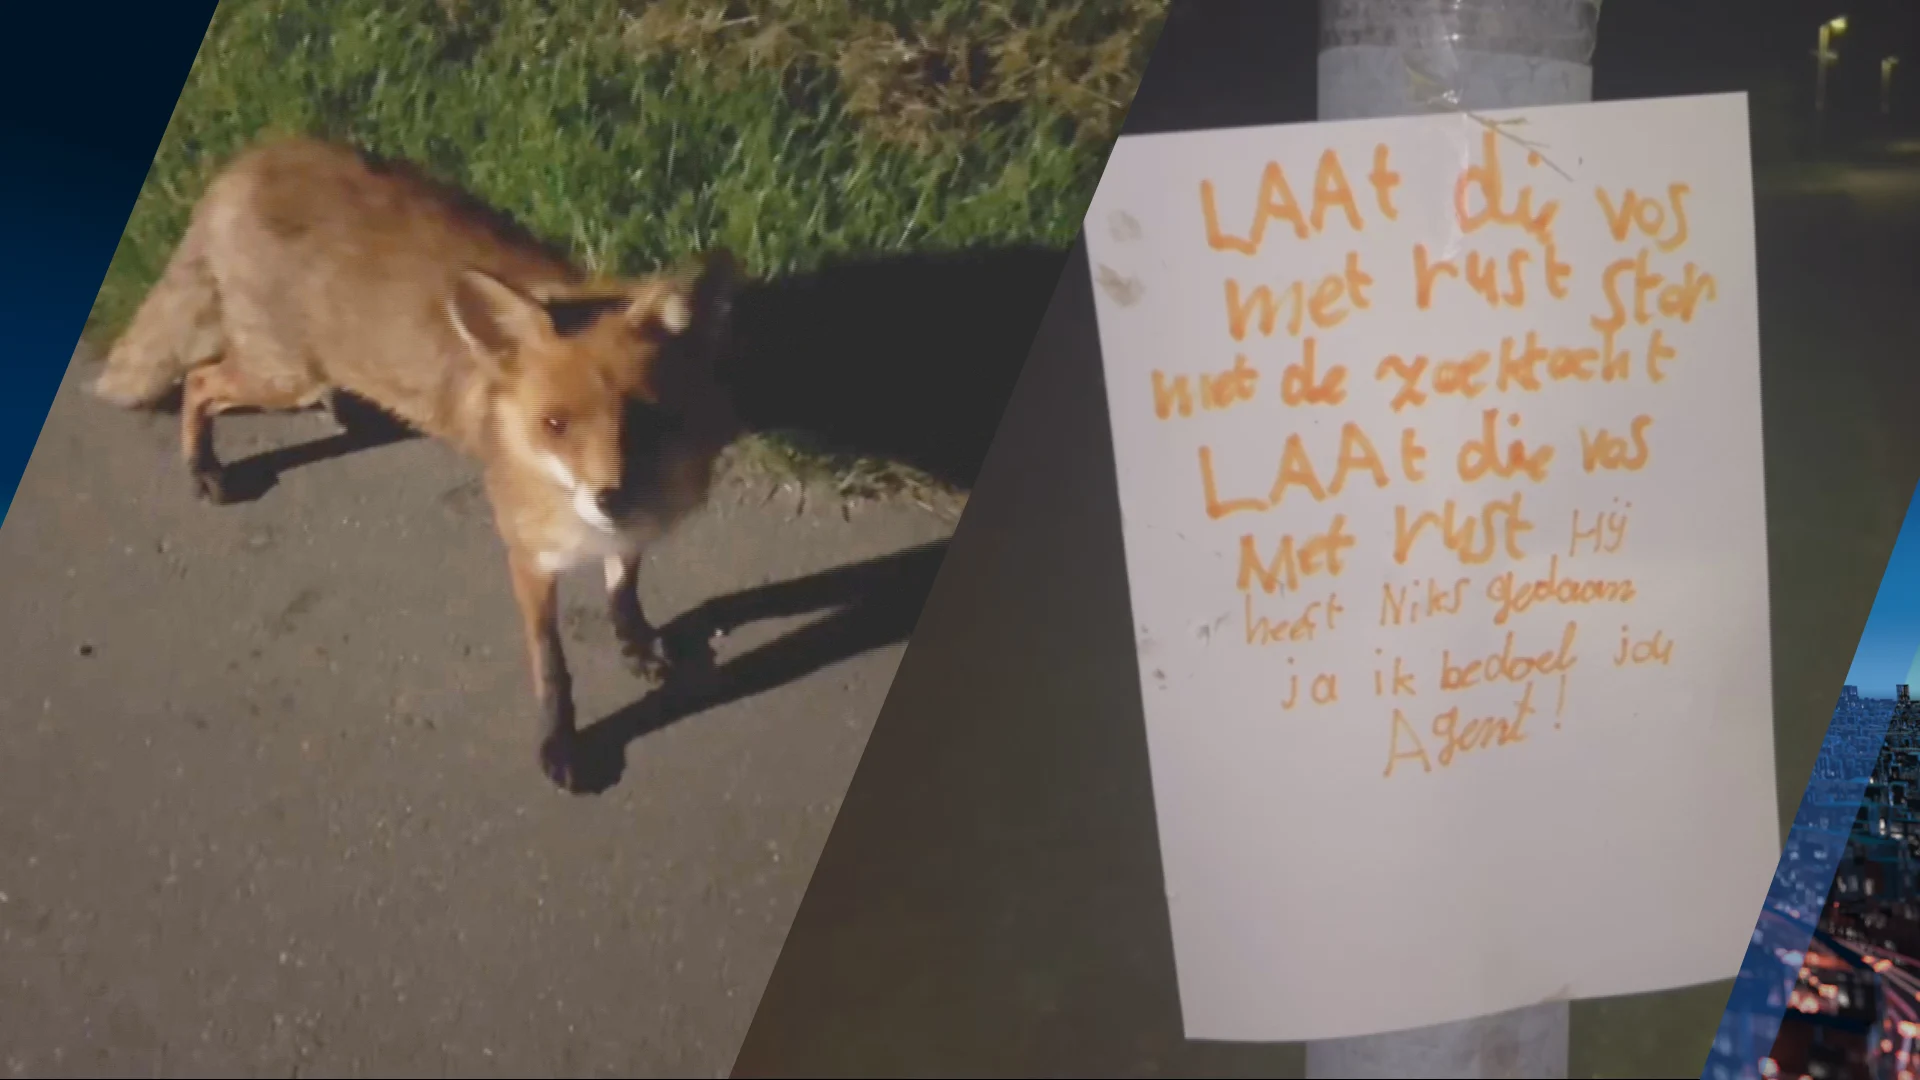 LAAt die vos
met rust stop
met de zoektocht
LAAt die vos
Met rust Hij
heeft Niks gedaan
ja ik bedoel jou
Agent!